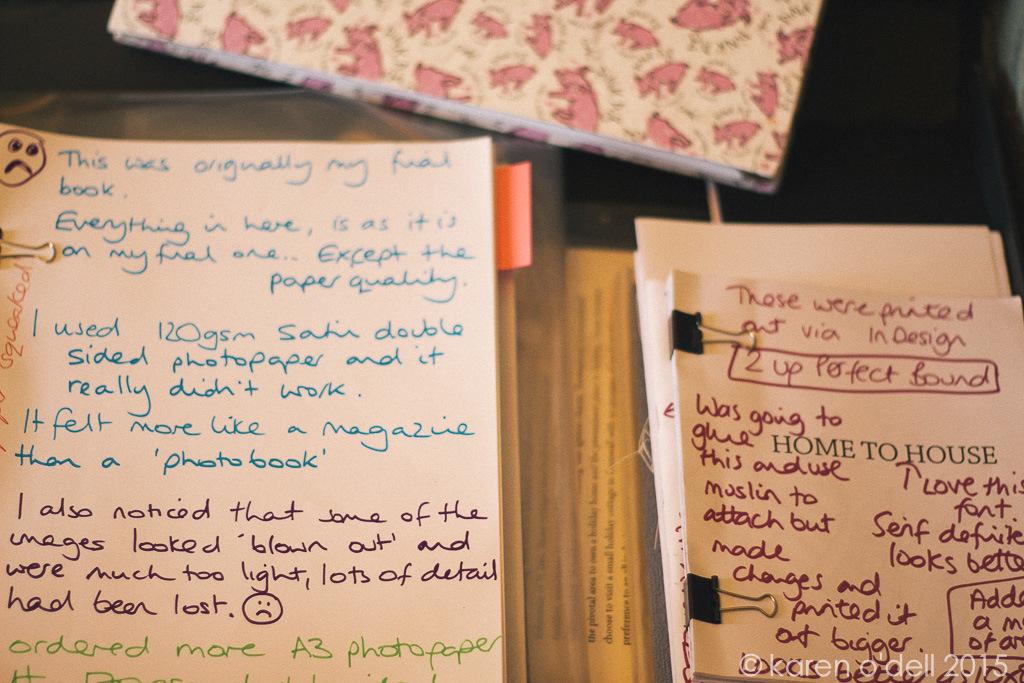 This was originally my final
book.
Everything in here, is as it is
on my final one.. Except the
paper quality.
I used 120gsm Satin double
sided photopaper and it
really didn't work.
It felt more like a magazine
than a 'photobook'
I also noticed that some of the
images looked 'blown out' and
were much too light, lots of detail
had been lost.
ordered more A3 photopaper
squeaked
These were printed
out via InDesign
2 up Perfect Bound
Was going to
glue
this and use
muslin to
attach but
made
changes and
printed it
out bigger.
HOME TO HOUSE
Love this
font
Serif definite
looks bette
Adde
a m
of ar
the pivotal area to own a holiday home and
choose to visit a small holiday cottage in
preference to
© karen o dell 2015